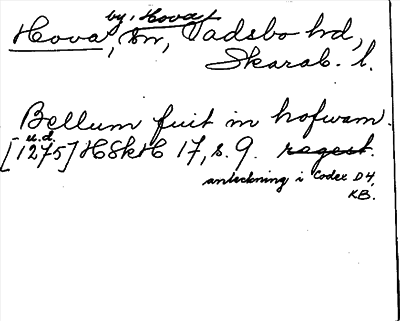 by, Hova sn
Hova, sn, Vadsbo hd,
Skarab. l.
Bellum fuit in hofwam.
u.d.
[1275] HSkH 17, s. 9. regest.
anteckning i Codex D4,
KB.